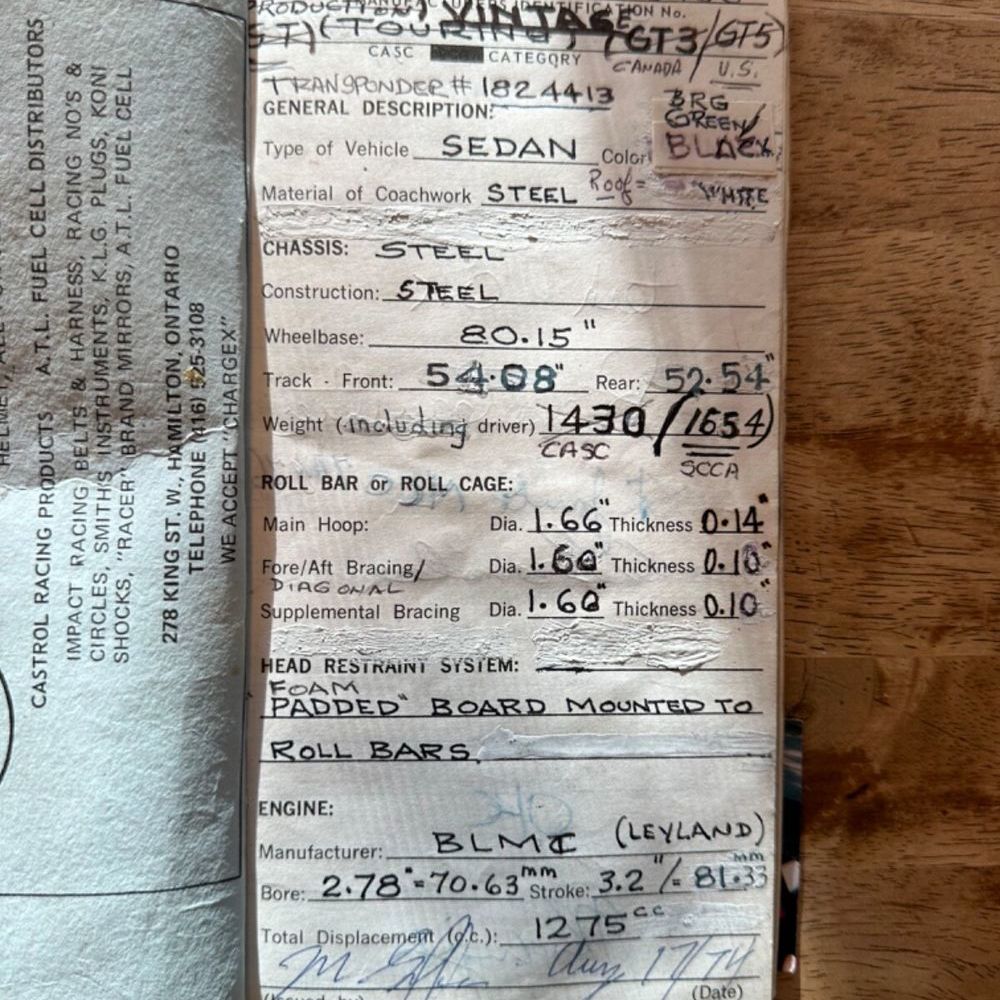 HELMET, ALL
CASTROL RACING PRODUCTS A.T.L. FUEL CELL DISTRIBUTORS
IMPACT RACING BELTS & HARNESS, RACING NO'S &
CIRCLES, SMITH'S INSTRUMENTS, K.L.G. PLUGS, KONI
SHOCKS, "RACER" BRAND MIRRORS, A.T.L. FUEL CELL
278 KING ST. W., HAMILTON, ONTARIO
TELEPHONE (416) 525-3108
WE ACCEPT "CHARGEX"
MANUFACTURERS IDENTIFICATION No.
PRODUCTION) VINTAGE
GT) (TOURING) (GT3/GT5)
CASC CATEGORY CANADA / U.S.
TRANSPONDER # 1824413
GENERAL DESCRIPTION:
BRG
GREEN/
Type of Vehicle SEDAN Color BLACK
Material of Coachwork STEEL Roof= WHITE
CHASSIS: STEEL
Construction: STEEL
Wheelbase: 80.15"
Track - Front: 54.08" Rear: 52.54"
Weight (including driver) 1430 / 1654)
CASC SCCA
ROLL BAR or ROLL CAGE:
Main Hoop: Dia. 1.66" Thickness 0.14"
Fore/Aft Bracing/ Dia. 1.60" Thickness 0.10"
DIAGONAL
Supplemental Bracing Dia. 1.60" Thickness 0.10"
HEAD RESTRAINT SYSTEM:
FOAM
PADDED BOARD MOUNTED TO
ROLL BARS
ENGINE:
Manufacturer: BLMC (LEYLAND)
Bore: 2.78" = 70.63mm Stroke: 3.2"/= 81.33mm
Total Displacement (c.c.): 1275cc
Aug 17/74
(Issued by) (Date)